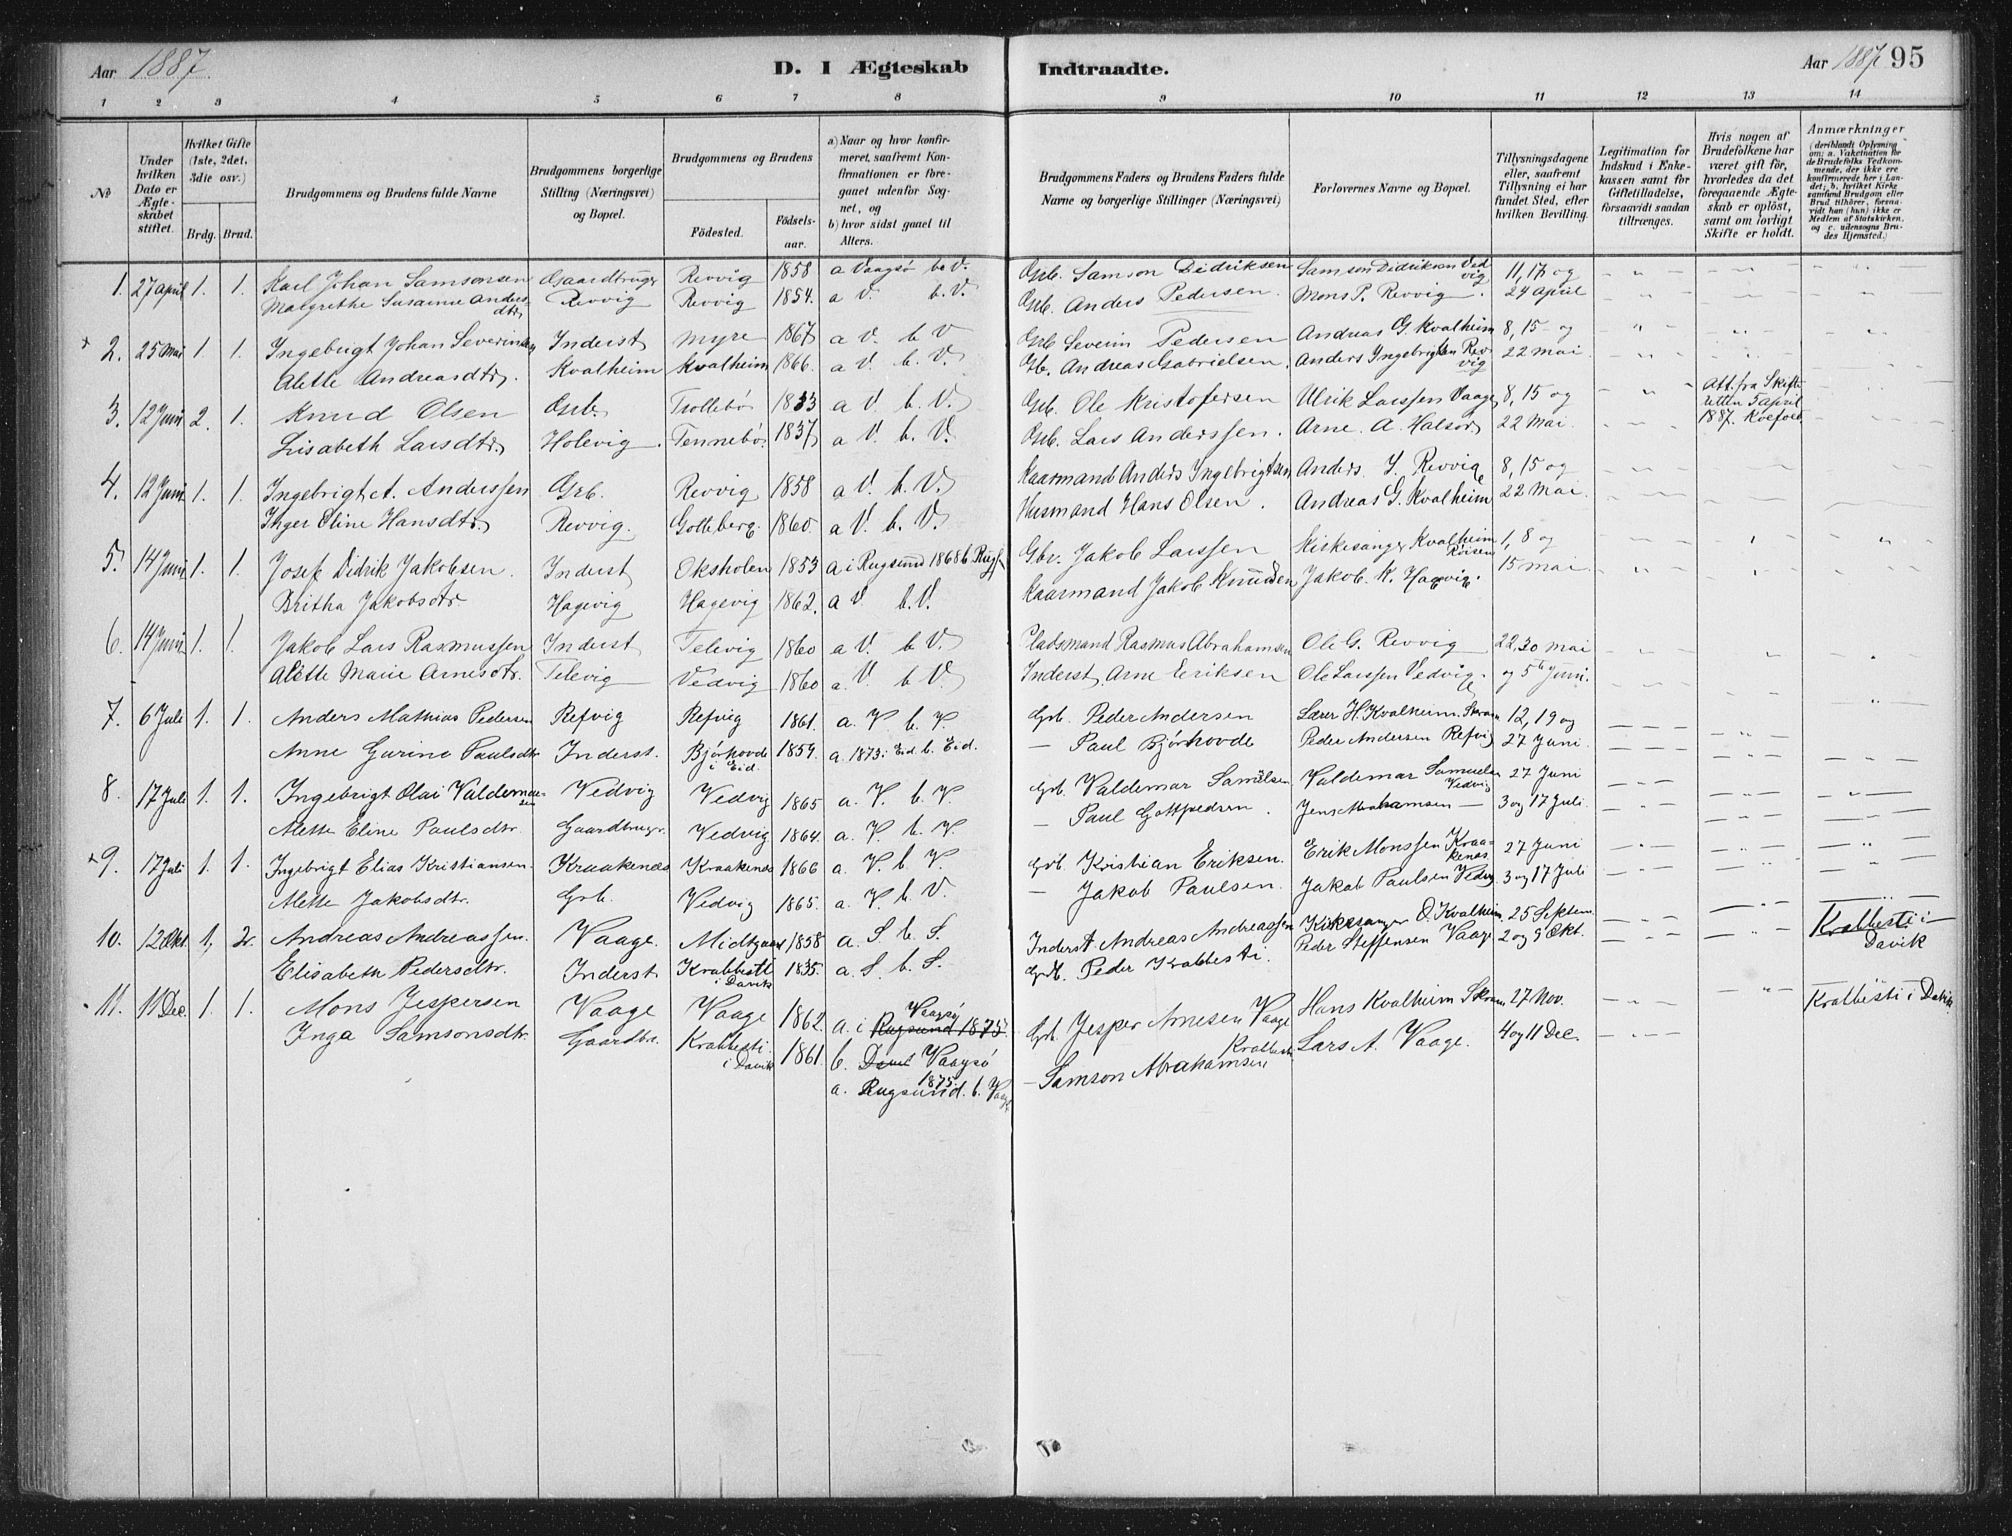 Aar 1887. D. I Ægteskab Indtraadte. Aar 1887 95
1 2 3 4 5 6 7 8 9 10 11 12 13 14
№
Under hvilken Dato er Ægteskabet stiftet.
Hvilket Gifte (1ste, 2det, 3die osv.)
Brdg. Brud.
Brudgommens og Brudens fulde Navne
Brudgommens borgerlige Stilling (Næringsvei) og Bopæl.
Brudgommens og Brudens
Fødested. Fødselsaar.
a) Naar og hvor konfirmeret, saafremt Konfirmationen er foregaaet udenfor Sognet, og
b) hvor sidst gaaet til Alters.
Brudgommens Faders og Brudens Faders fulde Navne og borgerlige Stillinger (Næringsvei)
Forlovernes Navne og Bopæl.
Tillysningsdagene eller, saafremt Tillysning ei har fundet Sted, efter hvilken Bevilling.
Legitimation for Indskud i Enkekassen samt for Giftetilladelse, forsaavidt saadan tiltrænges.
Hvis nogen af Brudefolkene har været gift før, hvorledes da det foregaaende Ægteskab er opløst, samt om lovligt Skifte er holdt.
Anmærkninger (deriblandt Oplysning om: a. Vakcination for de Brudefolks Vedkommende, der ikke ere konfirmerede her i Landet; b. hvilket Kirkesamfund Brudgom eller Brud tilhører, forsaavidt han (hun) ikke er Medlem af Statskirken, og c. udensogns Brudes Hjemsted.)
1. 27 April 1. 1. Karl Johan Samsonsen Gaardbruger Revvig 1858 a Vaagsø b. V. Grb. Samson Didriksen Samson Didriksen Vedvig 11, 17 og
Margrethe Susanne Andersdtr. Revvig Revvig 1854. a V. b. V. Grb. Anders Pedersen. Mons P. Revvig. 24 April
+ 2. 25 Mai 1. 1. Ingebrigt Johan Severinsen Inderst Myre 1867 a V. b V Grb Severin Pedersen Andreas G. Kvalheim 8, 15 og
Alette Andreasdtr. Kvalheim Kvalheim 1866. a V. b. V. Gb. Andreas Gabrielsen. Anders Ingebrigtsen Revvig 22 Mai.
3. 12 Juni 2. 1. Knud Olsen Grb. Trollebø 1833 a V. b. V. Grb. Ole Kristofersen Ulrik Larssen Vaage 8, 15 og Att. fra Skifteretten 5 April 1887.
Lisabeth Larsdtr. Holevig. Tennebø. 1837 a V. b. V. Grb. Lars Anderssen. Arne. A. Halsør 22 Mai.
4. 12 Juni 1. 1. Ingebrigt A. Anderssen Grb. Revvig 1858 a V. b. V. Kaarmand Anders Ingebrigtsen Anders. I. Revvig 8, 15 og
Inger Oline Hansdtr. Revvig. Gotteberg. 1860. a V. b. V. Husmand Hans Olsen. Andreas G. Kvalheim 22 Mai.
5. 14 Juni 1. 1. Josef Didrik Jakobsen. Inderst Oksholen 1853 a i Rugsund 1868 b. Rugs. Gbr. Jakob Larssen Kirkesanger Kvalheim Røisen 1, 8 og
Britha Jakobsdtr. Hagevig Hagevig 1862. a V b. V. Kaarmand Jakob Knudsen Jakob. K. Hagevig. 15 Mai
6. 14 Juni 1. 1. Jakob Lars Rasmussen Inderst Televig 1860 a V. b V. Pladsmand Rasmus Abrahamsen Ole G. Revvig 22, 30 Mai
Alette Marie Arnesdtr. Televig Vedvig 1860 a. V. b V. Inderst. Arne Eriksen Ole Larssen Vedvig. og 5te Juni.
7. 6 Juli 1. 1. Anders Mathias Pedersen Refvig Refvig 1861. a. V. b. V. Grb. Peder Andersen Lærer H. Kvalheim. Skram 12, 19 og
Anne Gurine Paulsdtr. Inderst. Bjørhovde i Eid. 1859. a. 1873 i Eid. b. Eid. — Paul Bjørhovde Peder Andersen Refvig 27 Juni.
8. 17 Juli 1. 1. Ingebrigt Olai Valdemarsen Vedvig Vedvig 1865 a. V. b. V. Grb. Valdemar Samuelsen Valdemar Samuelsen Vedvig 27 Juni
Alette Eline Paulsdtr. Gaardbruger. Vedvig 1864. a. V. b. V. — Paul Gottpedsen. Jens Abrahamsen — 3 og 17 Juli.
+ 9. 17 Juli 1. 1. Ingebrigt Elias Kristiansen. Kraakenæs Kraakenæs 1866 a. V. b. V. Grb. Kristian Eriksen. Erik Monssen Kraakenæs 27 Juni
Alette Jakobsdtr. Grb. Vedvig 1865. a. V. b. V. — Jakob Paulsen. Jakob Paulsen Vedvig 3 og 17 Juli
10. 12 Okt. 1. 2. Andreas Andreassen. Vaage. Midtgaard 1858 a. S. b. S. Inderst Andreas Andreassen Kirkesanger O. Kvalheim. 25 Septem. Krabbesti i Davik
Elisabeth Pedersdtr. Inderst Krabbesti i Davik 1835. a. S. b. S. Grb. Peder Krabbesti. Peder Steffensen Vaage 2 og 9 Okt.
11. 11 Dec. 1. 1. Mons Jespersen Vaage Vaage 1862. a. i Rugsund 1875 Vaagsø Grb. Jesper Arnesen Vaage Hans Kvalheim Skram 27 Nov. Krabbesti i Davik
Inga Samsonsdtr. Gaardbr. Krabbesti i Davik 1861. b. Vaagsø — Samson Abrahamsen Krabbesti Lars A. Vaage. 4 og 11 Dec.
a. Rugsund 1875. b. Vaagsø